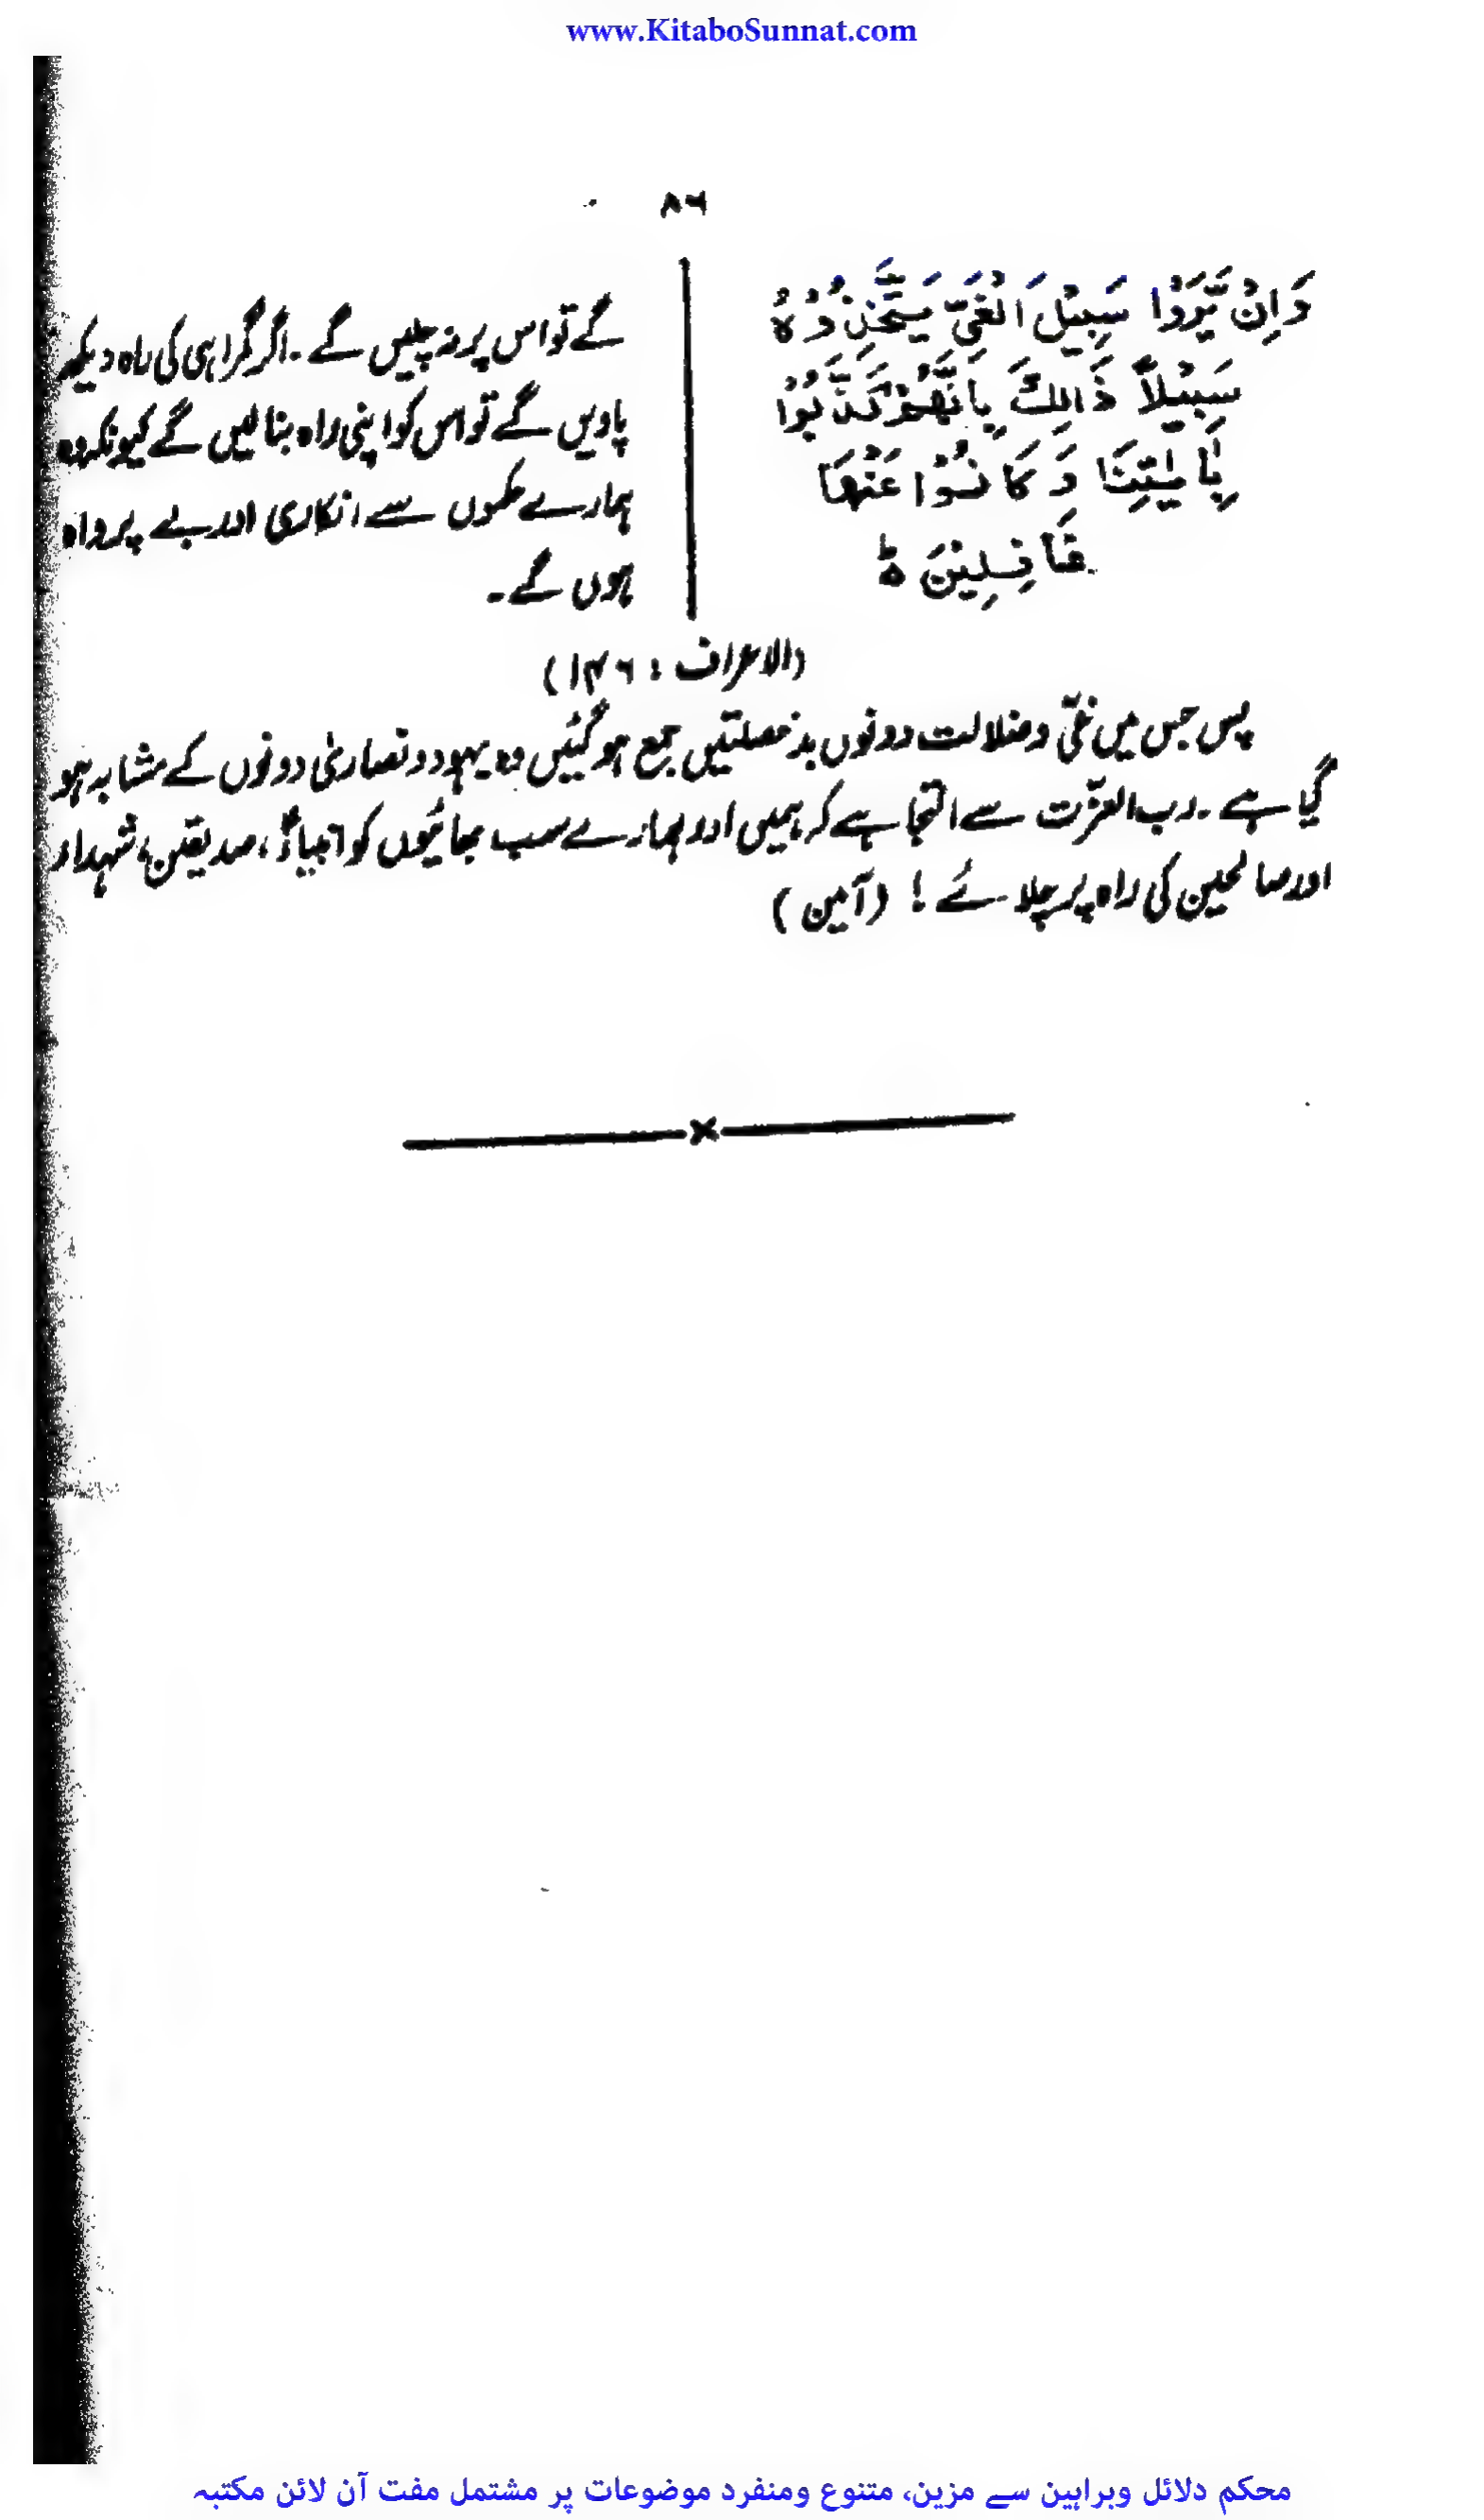 www.KitaboSunnat.com
۸۶
وَاِنْ يَّرَوْا سَبِيْلَ الْغَىِّ يَتَّخِذُوْهُ
سَبِيْلاً ذَالِكَ بِاَنَّهُمْ كَذَّبُوْا
بِاٰيٰتِنَا وَ كَانُوْا عَنْهَا
غَافِلِيْنَ ط
گے تو اس پر نہ چلیں گے ۔ اگر گمراہی کی راہ دیکھ
پاویں گے تو اس کو اپنی راہ بنا لیں گے کیونکہ وہ
ہمارے حکموں سے انکاری اور بے پرواہ
ہوں گے ۔
(الاعراف : ۱۴۶)
پس جس میں غیّ و ضلالت دونوں بد خصلتیں جمع ہو گئیں وہ یہود و نصاریٰ دونوں کے مشابہ ہو
گیا ہے ۔ رب العزّت سے التجا ہے کہ ہمیں اور ہمارے سب بھائیوں کو انبیاءؑ ، صدیقین، شہداء
اور صالحین کی راہ پر چلائے ! (آمین)
محکم دلائل وبراہین سے مزین، متنوع ومنفرد موضوعات پر مشتمل مفت آن لائن مکتبہ